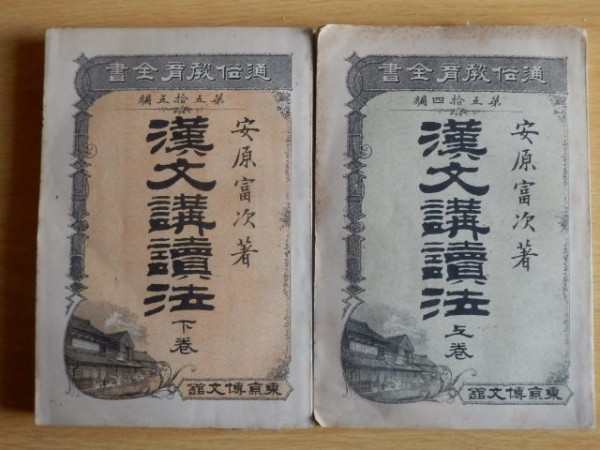 通俗敎育全書
第五拾四編
安原富次著
漢文講讀法
上巻
東京博文館
通俗敎育全書
第五拾五編
安原富次著
漢文講讀法
下巻
東京博文館